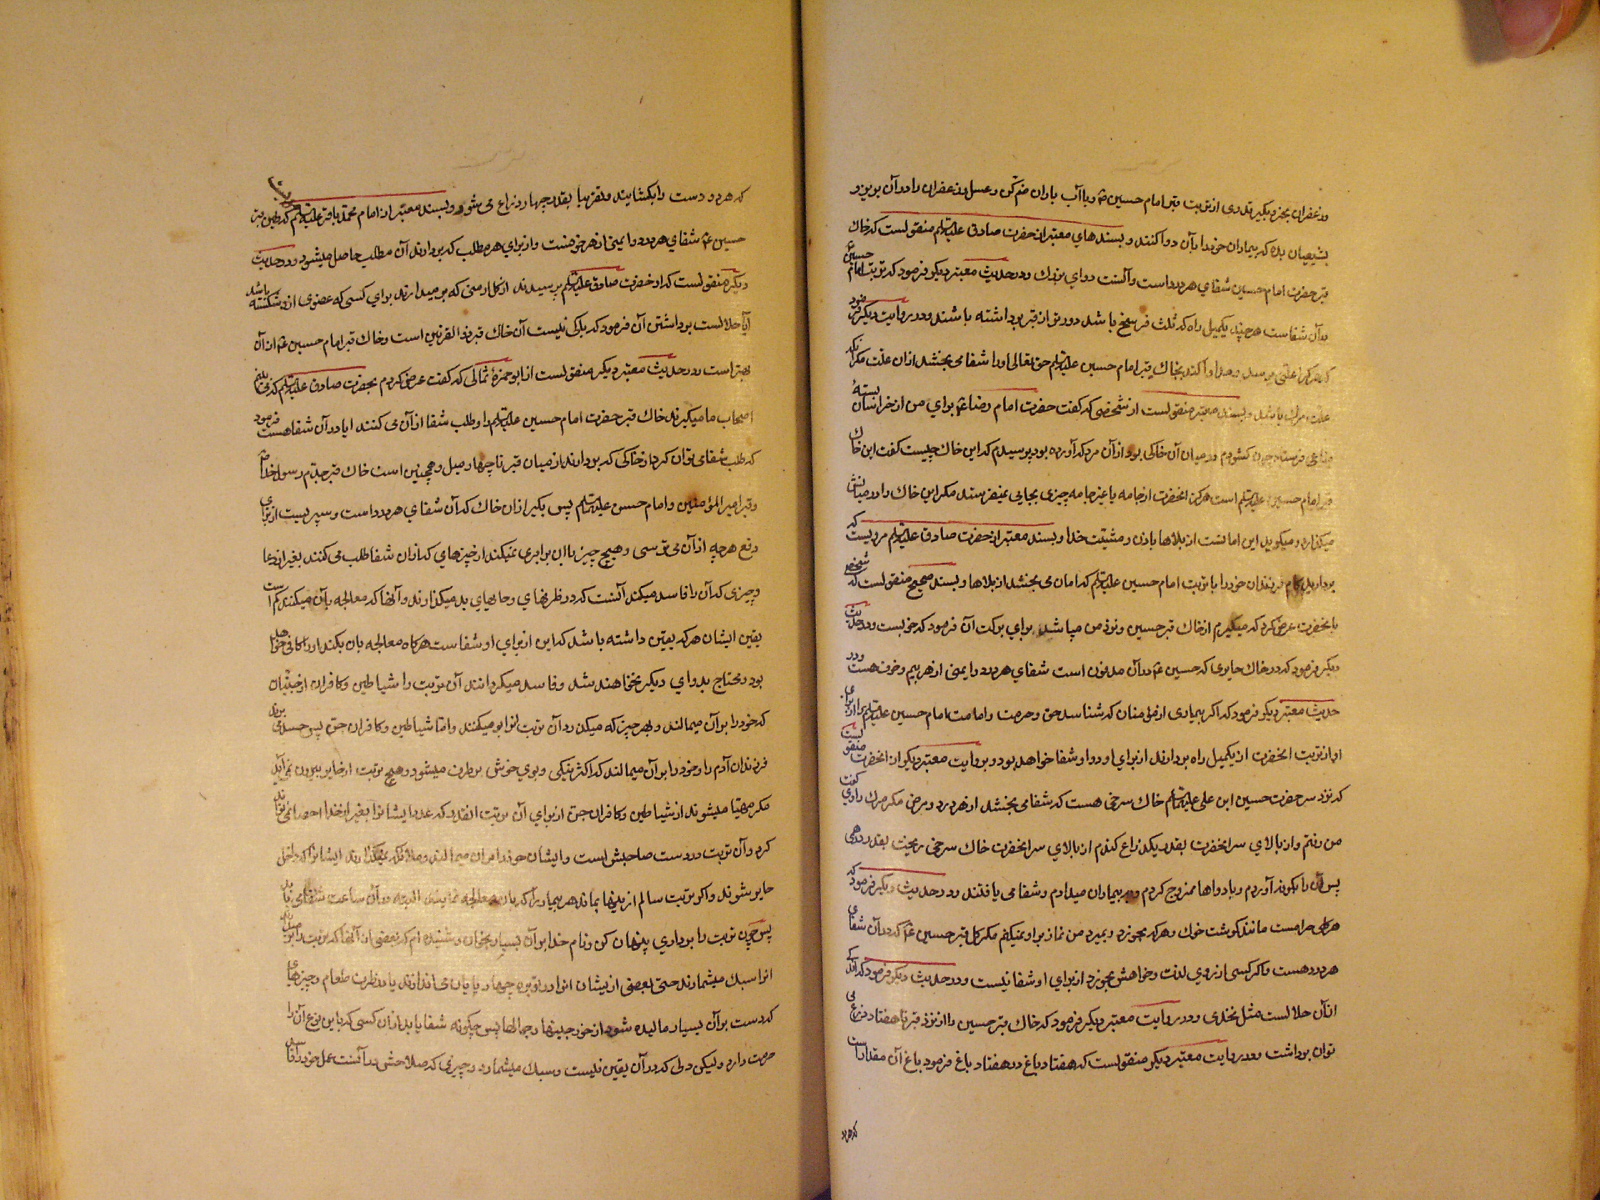 و زعفران بخر دیگیر قدری از تربت قبر امام حسین ع و با آب باران ضم کن و عسل و زعفران را در آن بریز و
بشیعیان بده که بیماران خود را بآن دوا کنند و بسندهای معتبر از حضرت صادق علیه السلام منقولست که خاک
قبر حضرت امام حسین شفای هر درد است و آنست دوای بزرك و در حدیث معتبر دیگر فرمود که تربت امام حسین ع
در آن شفاست هر چند یکمیل راه که ثلث فرسخ باشد دورتر از قبر برداشته باشند و در روایت دیگر فرمود
که هر کرا علتی برسد و مداوا کند بخاک قبر امام حسین علیه السلام حق تعالی او را شفا می بخشد از ان علت مگر آنکه
علت مرك باشد و بسند معتبر منقولست از شخصی که گفت حضرت امام رضا ع برای من از خراسان بسته
متاعی فرستاد چون کشودم در میان آن خاکی بود از آن مرد که آورده بود پرسیدم که این خاک چیست گفت این خاک
قبر امام حسین علیه السلام است هرگز آنحضرت از جامه یا غیر جامه چیزی بجائی نمیفرستد مگر این خاک را در میانش
میگذارد و میگوید این امانست از بلاها باذن و مشیّت خدا و بسند معتبر از حضرت صادق علیه السلام مرویست که
بردارید کام فرزندان خود را با تربت امام حسین علیه السلام که امان می بخشد از بلاها و بسند صحیح منقولست که شخصی
بآنحضرت عرض کرد که میگیرم از خاک قبر حسین و نزد من میباشد برای برکت آن فرمود که خوبست و در حدیث
دیگر فرمود که در خاک حایری که حسین ع در آن مدفون است شفای هر درد و ایمنی از هر بیم و خوف هست و در
حدیث معتبر دیگر فرمود که اگر بیماری از مؤمنان که شناسد حق و حرمت و امامت امام حسین علیه السلام را از برای
او از تربت آنحضرت از یکمیل راه بردارند از برای او دوا و شفا خواهد بود و بروایت معتبر دیگر از آنحضرت منقولست
که نزد سر حضرت حسین ابن علی علیهما السلام خاک سرخی هست که شفا می بخشد از هر درد و مرضی مگر مرك راوی گفت
من رفتم و از بالای سر آنحضرت بقدر یکذراع کندم از بالای سر آنحضرت خاک سرخی ریخت بقدر درهمی
پس آن را بکوفه آوردم و با دواها ممزوج کردم و به بیماران میدادم و شفا می یافتند و در حدیث دیگر فرمود که
هر گلی حرامست مانند گوشت خوك و هر که بخورد و بمیرد من نماز بر او نمیکنم مگر گل قبر حسین ع که در آن شفای
هر درد هست و اگر کسی از روی لذت و خواهش بخورد از برای او شفا نیست و در حدیث دیگر فرمود که اندکی
از آن حلالست مثل نخدی و در روایت معتبر دیگر فرمود که خاک قبر حسین را از نزد قبر تا هفتاد ذرع می
توان برداشت و در روایت معتبر دیگر منقولست که هفتاد باع در هفتاد باع فرمود باع آن مقدار است
که هر دو
که هر دو دست را بکشایند و تقریبا بقدر چهار ذراع می شود و بسند معتبر از امام محمد باقر علیه السلام که طین قبر
حسین ع شفای هر درد و ایمنی از هر خوفست و از برای هر مطلب که بردارند آن مطلب حاصل میشود و در حدیث
دیگر منقولست که از حضرت صادق علیه السلام پرسیدند از گل ارمنی که بر میدارند برای کسی که عضوی از و شکسته باشد
آیا حلالست برداشتن آن فرمود که باکی نیست آن خاک قبر ذوالقرنین است و خاک قبر امام حسین ع از آن
بهتر است و در حدیث معتبر دیگر منقولست از ابو حمزۀ ثمالی که گفت عرض کردم بحضرت صادق علیه السلام که می بینم
اصحاب ما میگیرند خاک قبر حضرت امام حسین علیه السلام را و طلب شفا از آن می کنند ایا در آن شفا هست فرمود
که طلب شفا می توان کرد از خاکی که بردارند از میان قبر تا چهار میل و همچنین است خاک قبر جدّم رسول خدا ص
و قبر امیر المؤمنین و امام حسن علیه السلام پس بگیر از ان خاک که آن شفای هر درد است و سپریست از برای
دفع هر چه از آن می ترسی و هیچ چیز با ان برابری نمیکند از چیزهای که از ان شفا طلب می کنند بغیر از دعا
و چیزی که آن را فاسد میکند آنست که در ظرفهای و جاهای بد میگذارند و آنها که معالجه بآن میکنند کم است
یقین ایشان هر که یقین داشته باشد که این از برای او شفاست هرگاه معالجه بان بکند او را کافی خواهد
بود و محتاج بدوای دیگر نخواهند شد و فاسد میگردانند آن تربت را شیاطین و کافران از جنیّان
که خود را بر آن میمالند و بهر چیز که میگذرد آن تربت انرا بو میکنند و امّا شیاطین و کافران جن پس حسد می برند
فرزندان آدم را و خود را بر آن میمالند که اکثر نیکی و بوی خوش برطرف میشود و هیچ تربت از حایر بیرون نمی آید
مگر مهیّا میشوند از شیاطین و کافران جن از برای آن تربت انقدر که عدد ایشانرا بغیر از خدا احصا نمی تواند
کرد و آن تربت در دست صاحبش است و ایشان خود را بران میمالند و ملائکه نمیگذارند ایشانرا که داخل
حایر شوند و اگر تربت سالم از اینها بماند هر بیمار را که بان معالجه نمایند البته در آن ساعت شفا می یابد
پس چون تربت را برداری پنهان کن و نام خدا بر آن بسیار بخوان و شنیده ام که بعضی از آنها که تربت را بر میدارند
انرا سبك میشمارند حتی بعضی از یشان انرا در توبره چهارپایان می اندازند یا در ظرف طعام و چیزهای
که دست بر آن بسیار مالیده شود از خورجینها و جوالها پس چگونه شفا یابد از ان کسی که باین نوع آن را
حرمت دارد و لیکن دلی که در آن یقین نیست و سبك میشمارد چیزی که صلاحش در آنست عمل خود را فاسد